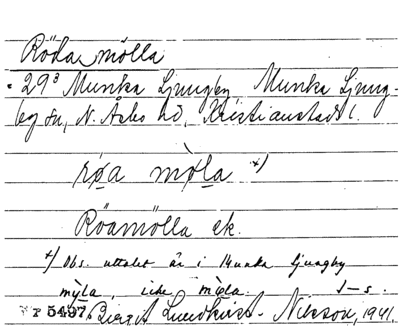 Röda mölla
29³ Munka Ljungby Munka Ljung-
by sn, N. Åsbo hd, Kristianstads l.
rø̀a mø̀la x)
Röamölla ek.
x) Obs. uttalet är i Munka Ljungby
mỳla, icke mø̀la. J-s.
P 5497. Birgit Lundkvist-Nilsson, 1941.